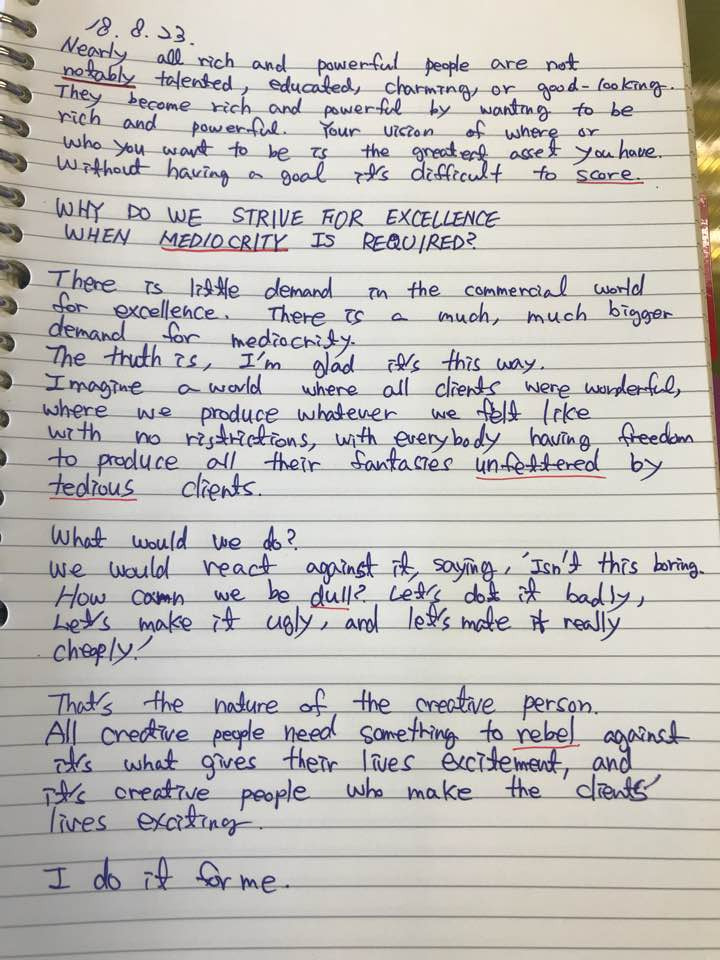 18.8.23.
Nearly all rich and powerful people are not
notably talented, educated, charming, or good-looking.
They become rich and powerful by wanting to be
rich and powerful. Your vision of where or
who you want to be is the greatest asset you have.
Without having a goal it's difficult to score.
WHY DO WE STRIVE FOR EXCELLENCE
WHEN MEDIOCRITY IS REQUIRED?
There is little demand in the commercial world
for excellence. There is a much, much bigger
demand for mediocrity.
The truth is, I'm glad it's this way.
Imagine a world where all clients were wonderful,
where we produce whatever we felt like
with no ristrictions, with everybody having freedom
to produce all their fantasies unfettered by
tedious clients.
What would we do?
We would react against it, saying, 'Isn't this boring.
How camn we be dull? Let's dot it badly,
Let's make it ugly, and let's make it really
cheaply!'
That's the nature of the creative person.
All creative people need something to rebel against
it's what gives their lives excitement, and
it's creative people who make the clients'
lives exciting.
I do it for me.